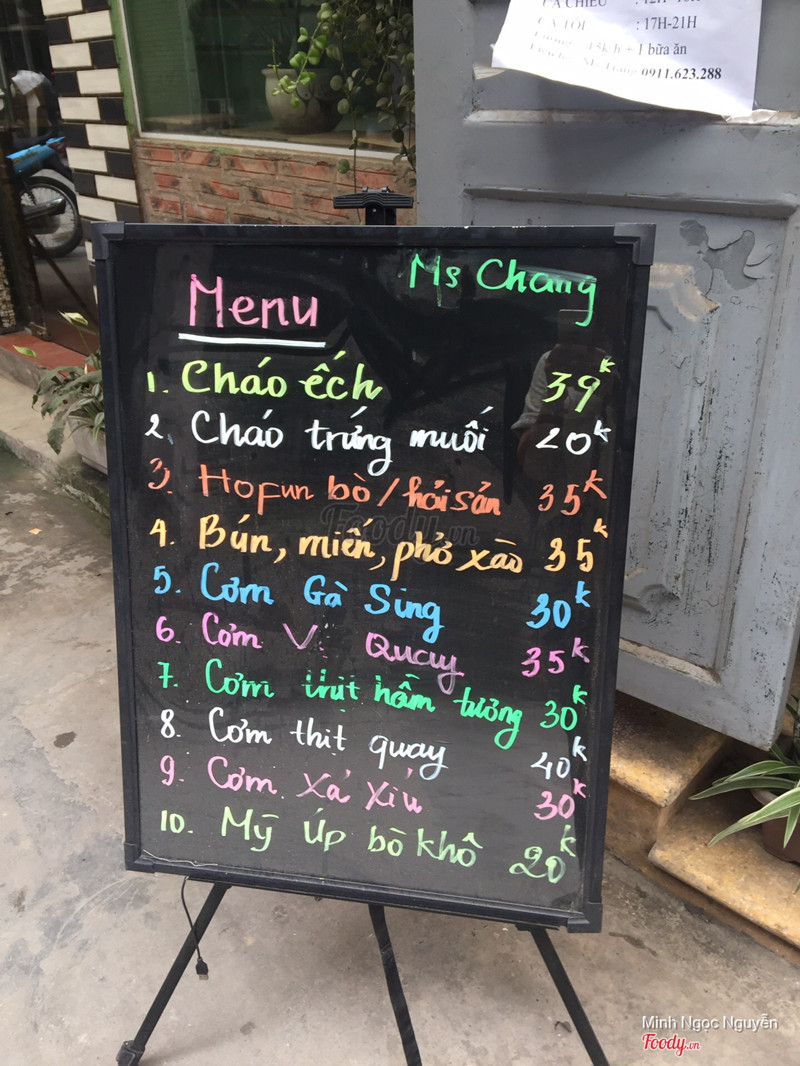 CA CHIỀU
CA TỐI : 17H-21H
15k/h + 1 bữa ăn
0911.623.288
Ms Chang
Menu
1. Cháo ếch 39k
2. Cháo trứng muối 20k
3. Hofun bò / hải sản 35k
4. Bún, miến, phở xào 35k
5. Cơm Gà Sing 30k
6. Cơm Vịt Quay 35k
7. Cơm thịt hầm tương 30k
8. Cơm thịt quay 40k
9. Cơm Xá Xíu 30k
10. Mỳ Úp bò khô 20k
Foody.vn
Minh Ngọc Nguyễn
Foody.vn